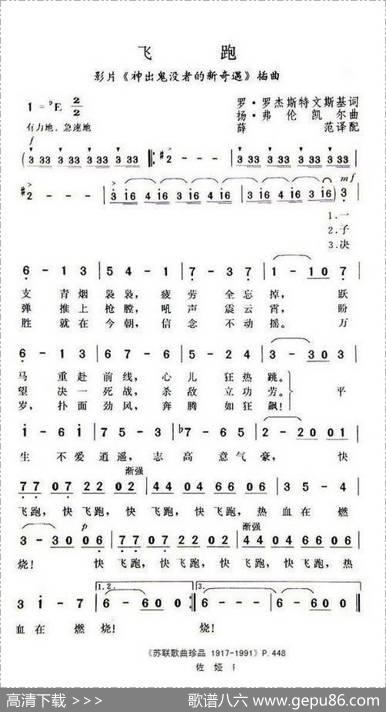 飞 跑
影片《神出鬼没者的新奇遇》插曲
1 = ♭E 2/2
罗·罗杰斯特文斯基词
扬·弗伦凯尔曲
薛 范译配
有力地、急速地
f
3 333 3 333 3 333 3 333 #2 - - - 3 333 3 333 3 333 3 333
#2 - - - 3 i6 4 6 3 i6 4 6 3 i6 4 6 3 i6 #i6 3
mf
1.一
2.子
3.决
6 - 1 3 5 4 - 1 7 - 3 7 1 - 1 0 7
支 青烟 袅袅，疲劳 全忘掉， 跃
弹 推上 枪膛，吼声 震云霄， 盼
胜 就在 今朝，信念 不动摇。 万
6 - 1 3 5 4 - 1 7 - 3 2 3 - 3 0 3
马 重赴 前线，心儿 狂热跳。
望 决一 死战，杀敌 立功劳。 平
岁，扑面 劲风，奔腾 如狂飙！
i - 6 i 7 5 - 3 ♭7 - 6 5 2 - 2 0 1
生 不爱 逍遥，志高 意气豪， 快
渐强
7 7 0 7 0 4 2 2 0 2 0 4 4 0 6 0 2 2 0 2 3 5 - 4
飞跑，快 飞跑，快 飞跑，快 飞跑，热 血在 燃
p
渐强
3 - - - 3 0 0 6 7 0 7 0 4 2 0 2 0 4 6 0 6 0 2 2 0 2
烧！ 快 飞跑，快 飞跑，快 飞跑，热
1.2.
3.
3 i - 7 6 - - - 6 - - 3 6 - - - 6 0 0 0
血在 燃烧！ 烧！
《苏联歌曲珍品 1917-1991》P.448
佐 娅
高清下载 >>>
歌谱八六 www.gepu86.com